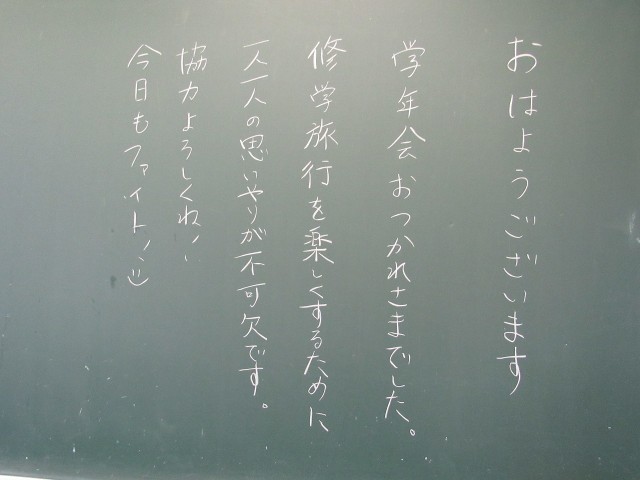 おはようございます
学年会おつかれさまでした。
修学旅行を楽しくするために
一人一人の思いやりが不可欠です。
協力よろしくね!!
今日もファイト!!